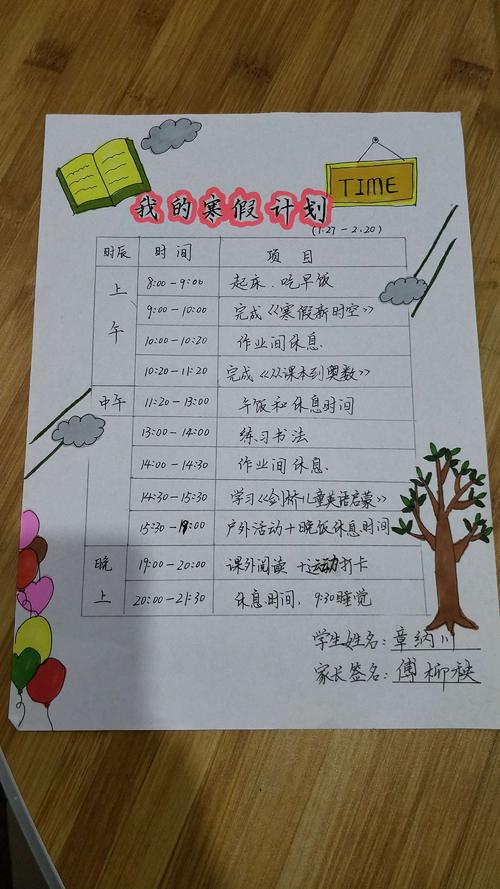 TIME
我的寒假计划
(1.27-2.20)
时辰 时间 项目
上午 8:00-9:00 起床、吃早饭
9:00-10:00 完成《寒假新时空》
10:00-10:20 作业间休息
10:20-11:20 完成《从课本到奥数》
中午 11:20-13:00 午饭和休息时间
13:00-14:00 练习书法
14:00-14:30 作业间休息
14:30-15:30 学习《剑桥儿童英语启蒙》
15:30-19:00 户外活动+晚饭休息时间
晚上 19:00-20:00 课外阅读+运动打卡
20:00-21:30 休息时间，9:30睡觉
学生姓名：章纳川
家长签名：傅柳